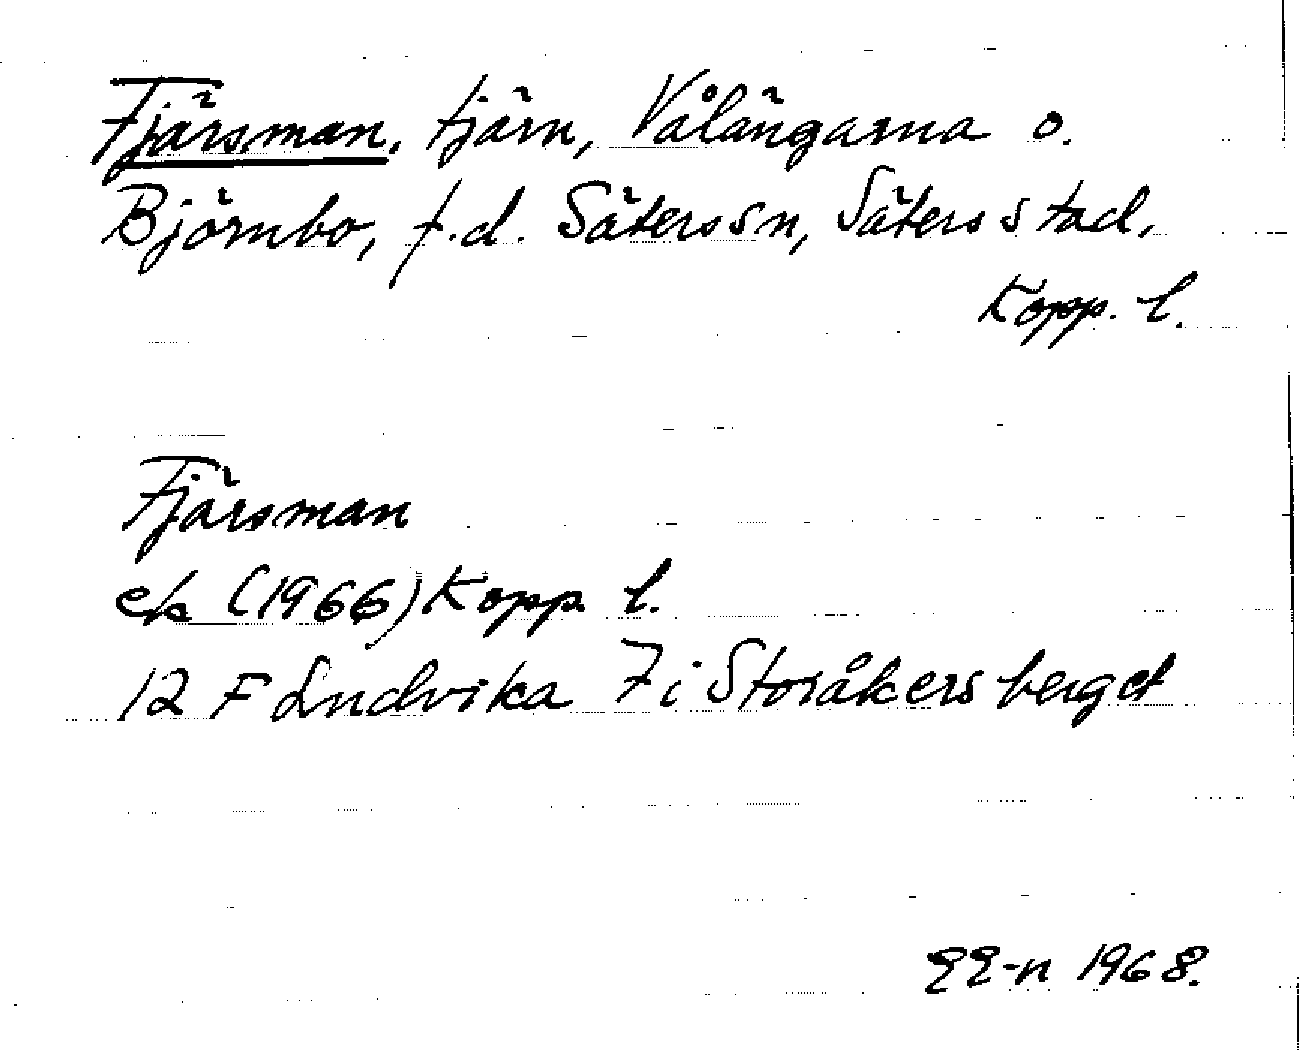 Fjärsman, tjärn, Vålängarna o.
Björnbo, f.d. Säterssn, Säters stad,
Kopp. l.
Fjärsman
ek (1966) Kopp. l.
12 F Ludvika 7 i Storåkersberget
EE-n 1968.